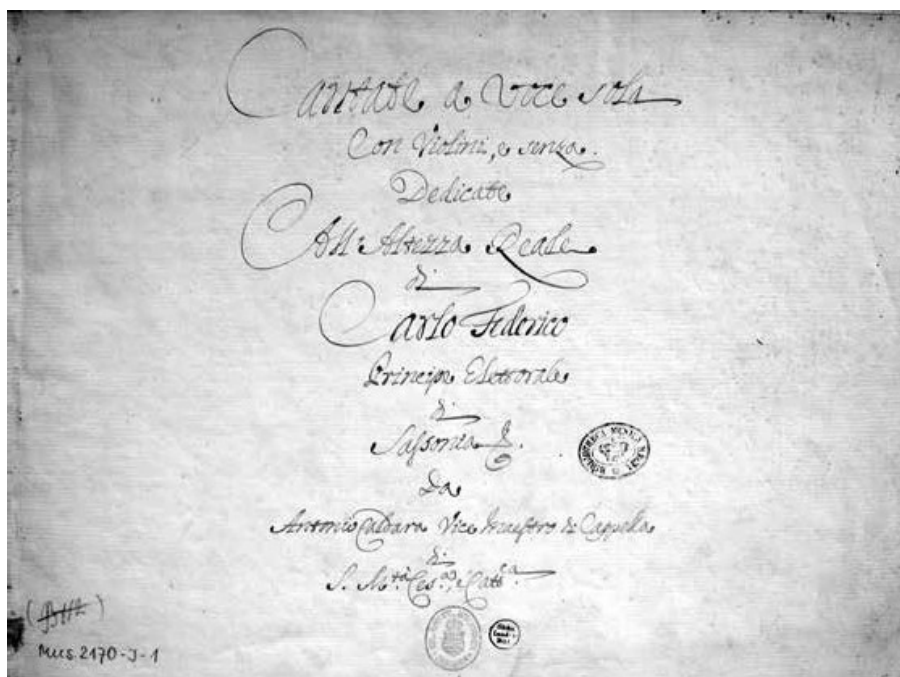 Cantate a Voce sola
Con Violini, e senza.
Dedicate
All'Altezza Reale
di
Carlo Federico
Principe Elettorale
di
Sassonia &.
Da
Antonio Caldara Vice Maestro di Cappella
di
S. M.tà Ces.a, e Catt.ca.
Mus. 2170-J-1